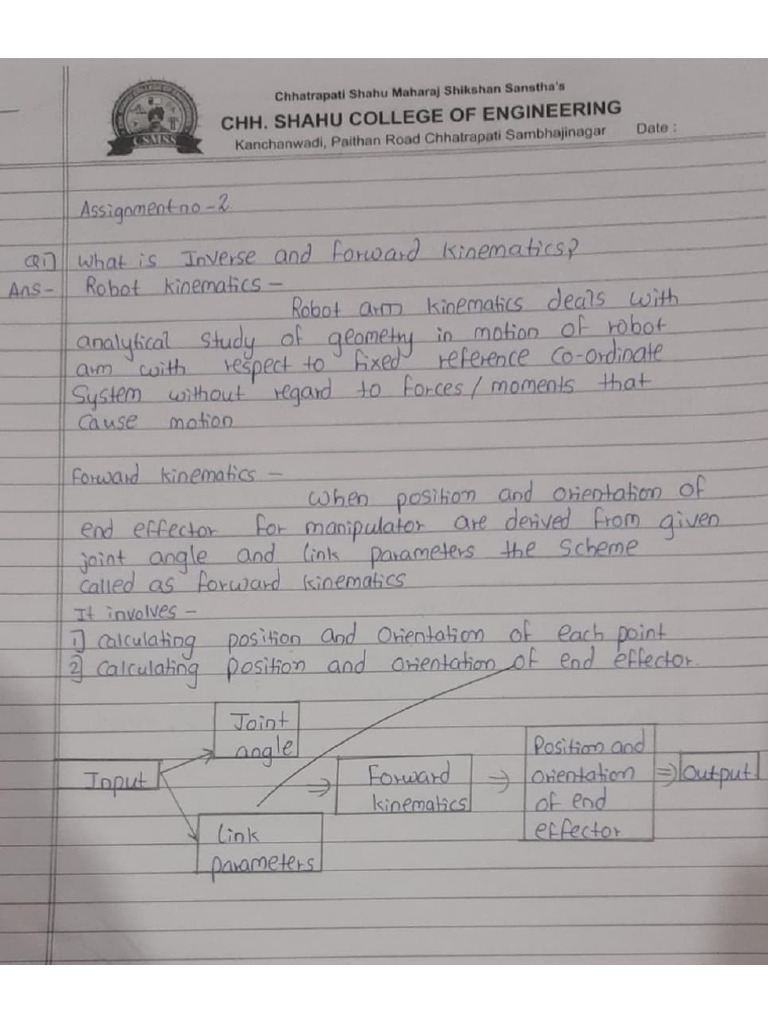 Chhatrapati Shahu Maharaj Shikshan Sanstha's
CHH. SHAHU COLLEGE OF ENGINEERING
Kanchanwadi, Paithan Road Chhatrapati Sambhajinagar
Date :
CSMSS
Assignment no - 2
Q1) What is Inverse and forward kinematics?
Ans - Robot kinematics -
Robot arm kinematics deals with
analytical study of geometry in motion of robot
arm with respect to fixed reference co-ordinate
system without regard to forces / moments that
cause motion
Forward kinematics -
When position and orientation of
end effector for manipulator are derived from given
joint angle and link parameters the scheme
called as forward kinematics
It involves -
1) Calculating position and Orientation of each point
2) Calculating position and orientation of end effector.
Input
Joint
angle
Link
parameters
⇒
Forward
kinematics
⇒
Position and
orientation
of end
effector
⇒
Output